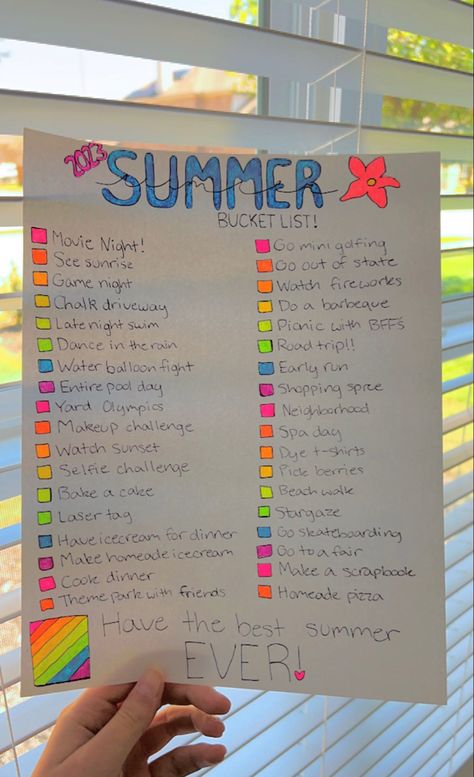 2023
SUMMER
summer
BUCKET LIST!
Movie Night!
See sunrise
Game night
Chalk driveway
Late night swim
Dance in the rain
Water balloon fight
Entire pool day
Yard Olympics
Makeup challenge
Watch sunset
Selfie challenge
Bake a cake
Laser tag
Have icecream for dinner
Make homeade icecream
Cook dinner
Theme park with friends
Go mini golfing
Go out of state
Watch fireworks
Do a barbeque
Picnic with BFF's
Road trip!!
Early run
Shopping spree
Neighborhood
Spa day
Dye t-shirts
Pick berries
Beach walk
Stargaze
Go skateboarding
Go to a fair
Make a scrapbook
Homeade pizza
Have the best summer
EVER!